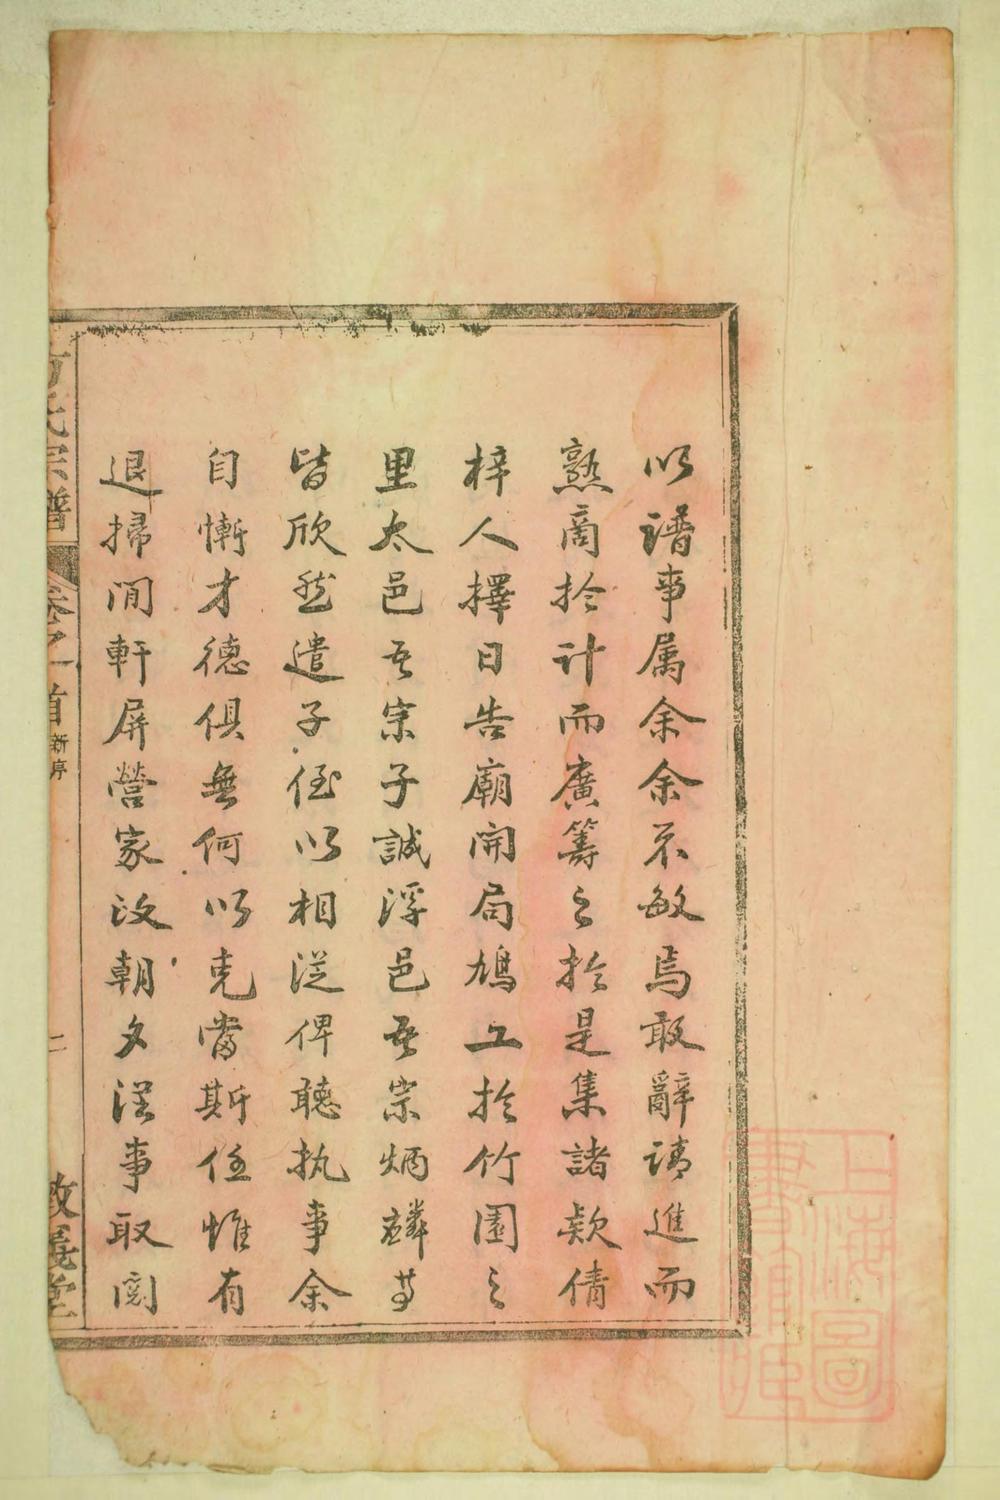 以譜事属余余不敏焉敢辭請進而
熟商於計而廣籌之於是集諸欵倩
梓人擇日告廟開局鳩工於竹園之
里太邑吾宗子誠浮邑吾宗炳麟等
皆欣然遣子侄以相從俾聽執事余
自慚才德俱無何以克當斯任惟有
退掃閒軒屏營家政朝夕從事取閱
方氏宗譜
卷之首
新序
二
敦義堂
上海圖
書館藏